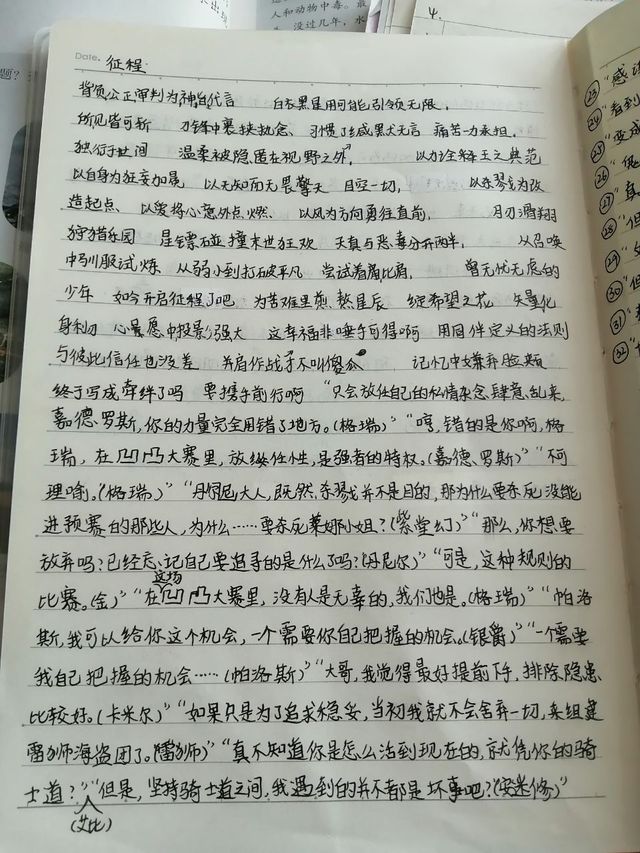 人和动物中毒。最
没过几年,水
4.
题?
Date.
征程
背负公正审判为神的代言 白衣黑星用可能引领无限,
所见皆可斩 刀锋中裹挟执念、习惯了缄默无言 痛苦一力承担,
独行于世间 温柔被隐匿在视野之外, 以力诠释王之典范
以自身为狂妄加冕 以无知而无畏擎天 目空一切, 以杀戮为改
造起点、以爱将心意外点燃、以风为方向勇往直前, 月刃滑翔
狩猎乐园 是镖碰撞末世狂欢 天真与恶毒分开两半, 从召唤
中驯服试炼 从弱小到打破平凡 尝试着肩比肩, 曾无忧无虑的
少年 如今开启征程了吧 为苦难里煎熬星辰 绽希望之花 矢量化
身利刃 心愿中投影强大 这幸福非唾手可得啊 用同伴定义的法则
与彼此信任也没差 并肩作战才不叫傻瓜 记忆中嫌弃脸颊
终于写成牵绊了吗 要携手前行啊 “只会放任自己的私情杂念,肆意乱来,
嘉德罗斯,你的力量完全用错了地方。(格瑞)”“哼,错的是你啊,格
瑞,在凹凸大赛里,放纵任性,是强者的特权。(嘉德罗斯)”“不可
理喻。(格瑞)”“丹尼尔大人,既然,杀戮并不是目的,那为什么要杀死没能
进预赛的那些人,为什么……要杀死莱娜小姐?(紫堂幻)”“那么,你想要
放弃吗?已经忘记自己要追寻的是什么了吗?(丹尼尔)”“可是,这种规则的
比赛。(金)”“在这场凹凸大赛里,没有人是无辜的,我们也是。(格瑞)”“帕洛
斯,我可以给你这个机会,一个需要你自己把握的机会。(银爵)”“一个需要
我自己把握的机会……(帕洛斯)”“大哥,我觉得最好提前下手,排除隐患,
比较好。(卡米尔)”“如果只是为了追求稳妥,当初我就不会舍弃一切,来组建
雷狮海盗团了。(雷狮)”“真不知道你是怎么活到现在的,就凭你的骑
士道?(艾比)”“但是,坚持骑士道之间,我遇到的并不都是坏事吧?(安迷修)”
㉓“感
㉔“看到
㉕“变成
㉖
㉗“真
㉘“但
㉙
㉚“但
㉛
㉜